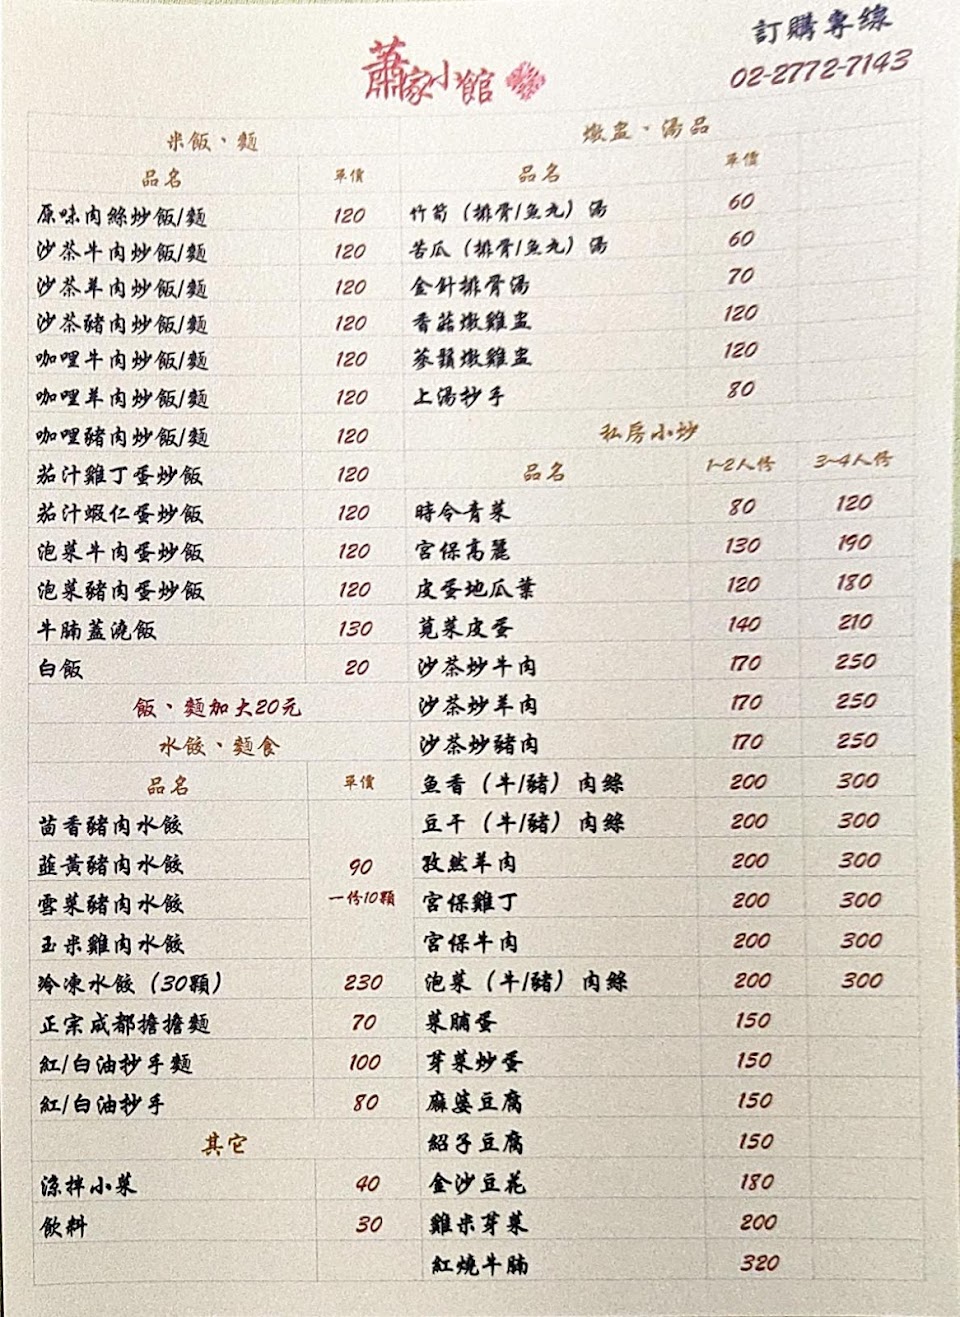 訂購專線
02-2772-7143
蕭家小館
米飯、麵
品名 單價
原味肉絲炒飯/麵 120
沙茶牛肉炒飯/麵 120
沙茶羊肉炒飯/麵 120
沙茶豬肉炒飯/麵 120
咖哩牛肉炒飯/麵 120
咖哩羊肉炒飯/麵 120
咖哩豬肉炒飯/麵 120
茄汁雞丁蛋炒飯 120
茄汁蝦仁蛋炒飯 120
泡菜牛肉蛋炒飯 120
泡菜豬肉蛋炒飯 120
牛腩蓋澆飯 130
白飯 20
飯、麵加大20元
水餃、麵食
品名 單價
茴香豬肉水餃
韮黃豬肉水餃 90
雪菜豬肉水餃 一份10顆
玉米雞肉水餃
冷凍水餃（30顆） 230
正宗成都擔擔麵 70
紅/白油抄手麵 100
紅/白油抄手 80
其它
涼拌小菜 40
飲料 30
燉盅、湯品
品名 單價
竹筍（排骨/魚丸）湯 60
苦瓜（排骨/魚丸）湯 60
金針排骨湯 70
香菇燉雞盅 120
蔘鬚燉雞盅 120
上湯抄手 80
私房小炒
品名 1~2人份 3~4人份
時令青菜 80 120
宮保高麗 130 190
皮蛋地瓜葉 120 180
莧菜皮蛋 140 210
沙茶炒牛肉 170 250
沙茶炒羊肉 170 250
沙茶炒豬肉 170 250
魚香（牛/豬）肉絲 200 300
豆干（牛/豬）肉絲 200 300
孜然羊肉 200 300
宮保雞丁 200 300
宮保牛肉 200 300
泡菜（牛/豬）肉絲 200 300
菜脯蛋 150
芽菜炒蛋 150
麻婆豆腐 150
紹子豆腐 150
金沙豆花 180
雞米芽菜 200
紅燒牛腩 320